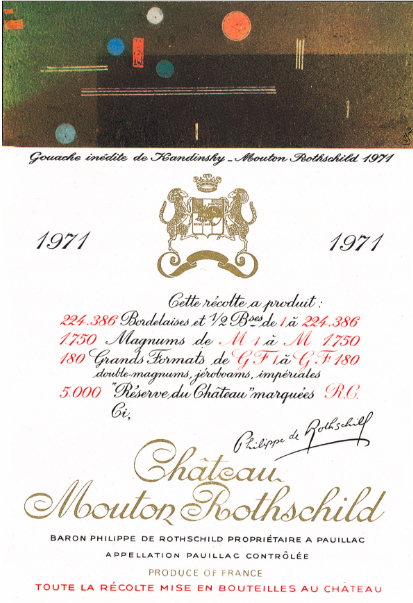 Gouache inédite de Kandinsky - Mouton Rothschild 1971
1971 1971
Cette récolte a produit :
224.386 Bordelaises et 1/2 Bses de 1 à 224.386
1750 Magnums de M 1 à M 1750
180 Grands Formats de G.F 1 à G.F 180
double-magnums, jéroboams, impériales
5.000 "Réserve du Château" marquées R.C.
Ci,
Philippe de Rothschild
Château
Mouton Rothschild
BARON PHILIPPE DE ROTHSCHILD PROPRIÉTAIRE A PAUILLAC
APPELLATION PAUILLAC CONTRÔLÉE
PRODUCE OF FRANCE
TOUTE LA RÉCOLTE MISE EN BOUTEILLES AU CHÂTEAU